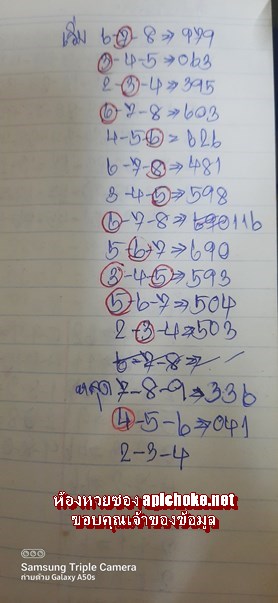 เริ่ม 6-7-8⇒979
3-4-5⇒063
2-3-4⇒395
6-7-8⇒603
4-5-6=626
6-7-8⇒481
3-4-5⇒598
6-7-8⇒116
5-6-7⇒690
3-4-5⇒593
5-6-7⇒504
2-3-4⇒503
6-7-8⇒
7-8-9⇒336
4-5-6⇒041
2-3-4
ห้องหวยซอง apichoke.net
ขอบคุณเจ้าของข้อมูล
Samsung Triple Camera
ถ่ายด้วย Galaxy A50s